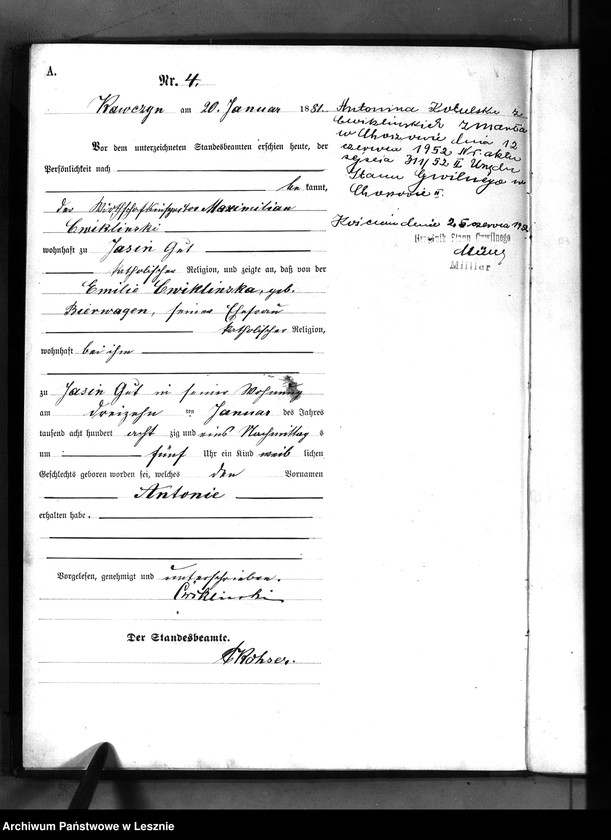 A.
Nr. 4.
Kawczyn am 20. Januar 1881.
Vor dem unterzeichneten Standesbeamten erschien heute, der
Persönlichkeit nach
bekannt,
der Wirthschaftsinspector Maximilian
Cwiklinski
wohnhaft zu Jasin Gut
katholischer Religion, und zeigte an, daß von der
Emilie Cwiklinska, geb.
Bierwagen, seiner Ehefrau
katholischer Religion,
wohnhaft bei ihm
zu Jasin Gut in seiner Wohnung
am dreizehn ten Januar des Jahres
tausend acht hundert acht zig und eins Nachmittag s
um fünf Uhr ein Kind weib lichen
Geschlechts geboren worden sei, welches den Vornamen
Antonie
erhalten habe.
Vorgelesen, genehmigt und unterschrieben.
Cwiklinski
Der Standesbeamte.
Antonina Kobulska z
Cwiklinskich zmarła
w Chorzowie dnia 12
czerwca 1952 Nr. aktu
zejścia 311/52 II Urzędu
Stanu Cywilnego w
Chorzowie II.
Kościan dnia 25 czerwca 1952
Urzędnik Stanu Cywilnego
Archiwum Państwowe w Lesznie